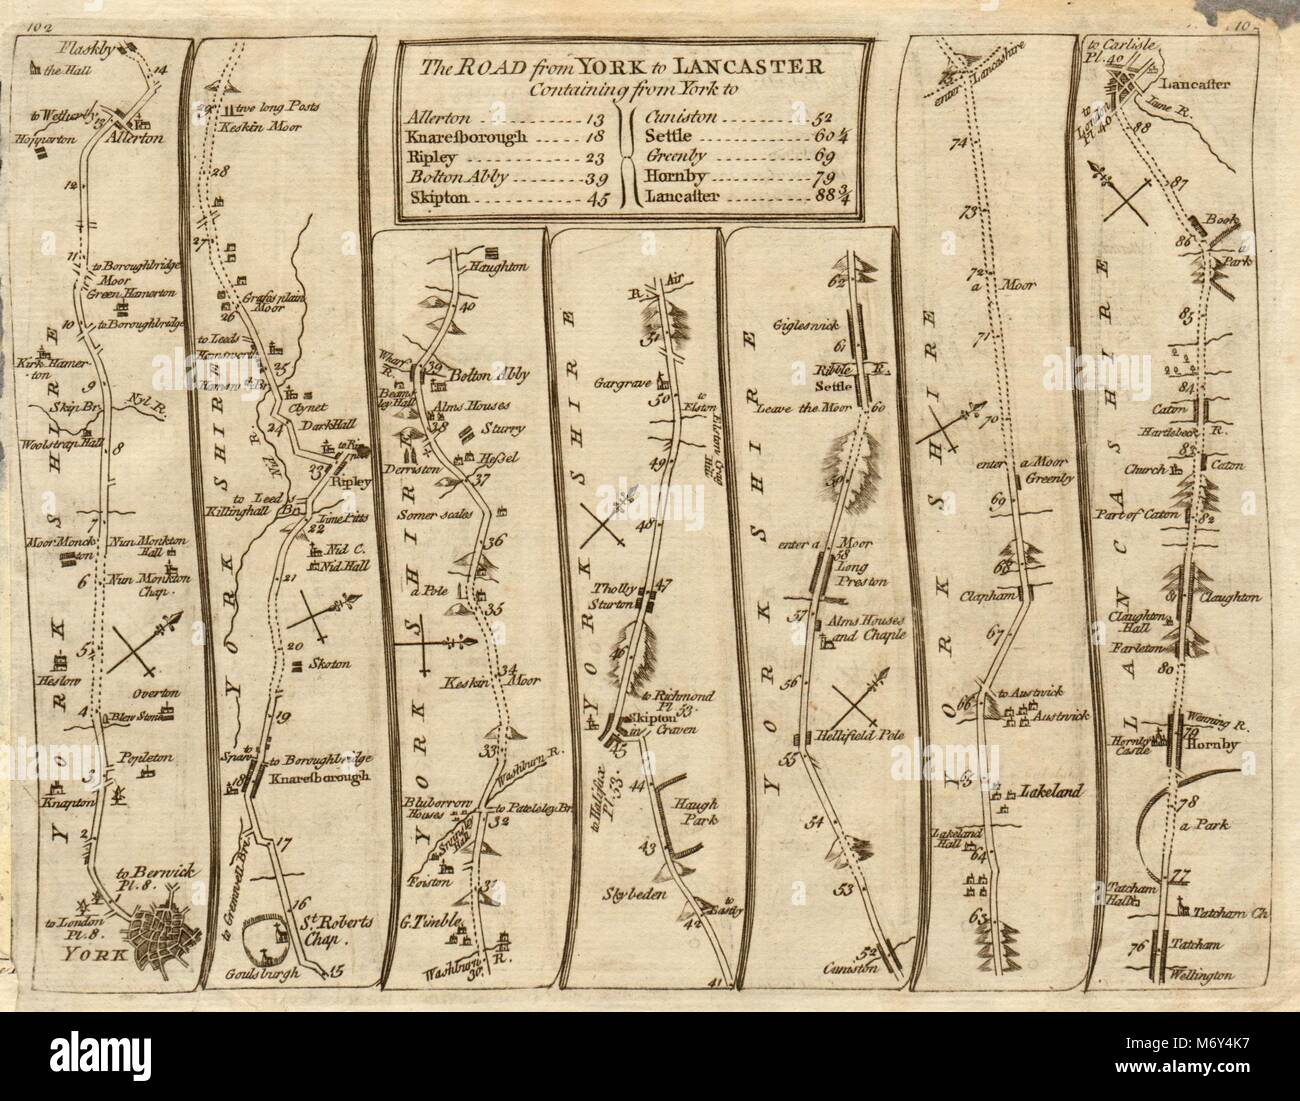 102
The ROAD from YORK to LANCASTER
Containing from York to
Allerton 13
Knaresborough 18
Ripley 23
Bolton Abby 39
Skipton 45
Cuniston 52
Settle 60 1/4
Greenby 69
Hornby 79
Lancaster 88 3/4
Flaskby
the Hall
14
to Wetherby
13
Hopperton
Allerton
12
11
to Boroughbridge
Moor
Green Hamerton
10
to Boroughbridge
Kirk Hamerton
9
Skip Br.
Nyl R.
Woolstrap Hall
8
7
Moor Monckton
Nun Monkton
Hall
6
Nun Monkton
Chap.
5
Heslow
Overton
4
Blew Stone
Popleton
3
Knapton
2
to Berwick
Pl. 8.
to London
Pl. 8.
YORK
YORKSHIRE
29
two long Posts
Keskin Moor
28
27
Grassplain
Moor
26
to Leeds
Hamsworth
25
Hamsworth Br.
Clynet
Dark Hall
24
Nid R.
23
Ripley
to Leeds
Killinghall
Br.
22
Lime Pitts
Nid C.
Nid Hall
21
20
Skoton
19
to Spaw
to Boroughbridge
18
Knaresborough
17
to Gremwell Br.
16
St. Roberts
Chap.
Goulsburgh
15
YORKSHIRE
Haughton
40
Wharf R.
39
Bolton Abby
Beamsley Hall
Alms Houses
38
Sturry
Derriston
Hessel
37
Somerscales
36
a Pole
35
34
Keskin Moor
33
Washburn R.
Bluborrow
Houses
to Pateley Br.
32
Foiston
31
G. Timble
Washburn R.
30
YORKSHIRE
R. Air
51
Gargrave
50
to
Elston
49
48
Tholby
47
Sturton
46
to Richmond
Pl. 53.
Skipton
in Craven
45
to Halifax
Pl. 53.
44
Haugh
Park
43
Skybeden
to
Eastby
42
41
YORKSHIRE
62
Gigleswick
61
Ribble R.
Settle
Leave the Moor
60
59
enter a Moor
58
Long
Preston
57
Alms Houses
and Chaple
56
Hellifield Pole
55
54
53
52
Cuniston
YORKSHIRE
75
enter Lancashire
74
73
72
a Moor
71
70
enter a Moor
Greenby
69
68
Clapham
67
66
to Austwick
Austwick
65
Lakeland
Lakeland
Hall
64
63
YORKSHIRE
to Carlisle
Pl. 40
Lancaster
to London
Pl. 40
Lune R.
88
87
Book
86
a
Park
85
84
Caton
Hartlebeck R.
83
Church
Caton
Part of Caton
82
81
Claughton
Claughton
Hall
Farleton
80
Wenning R.
79
Hornby
Castle
Hornby
78
a Park
77
Tatcham
Hall
Tatcham Ch.
76
Tatcham
Wellington
LANCASHIRE
alamy
alamy stock photo
M6Y4K7
www.alamy.com